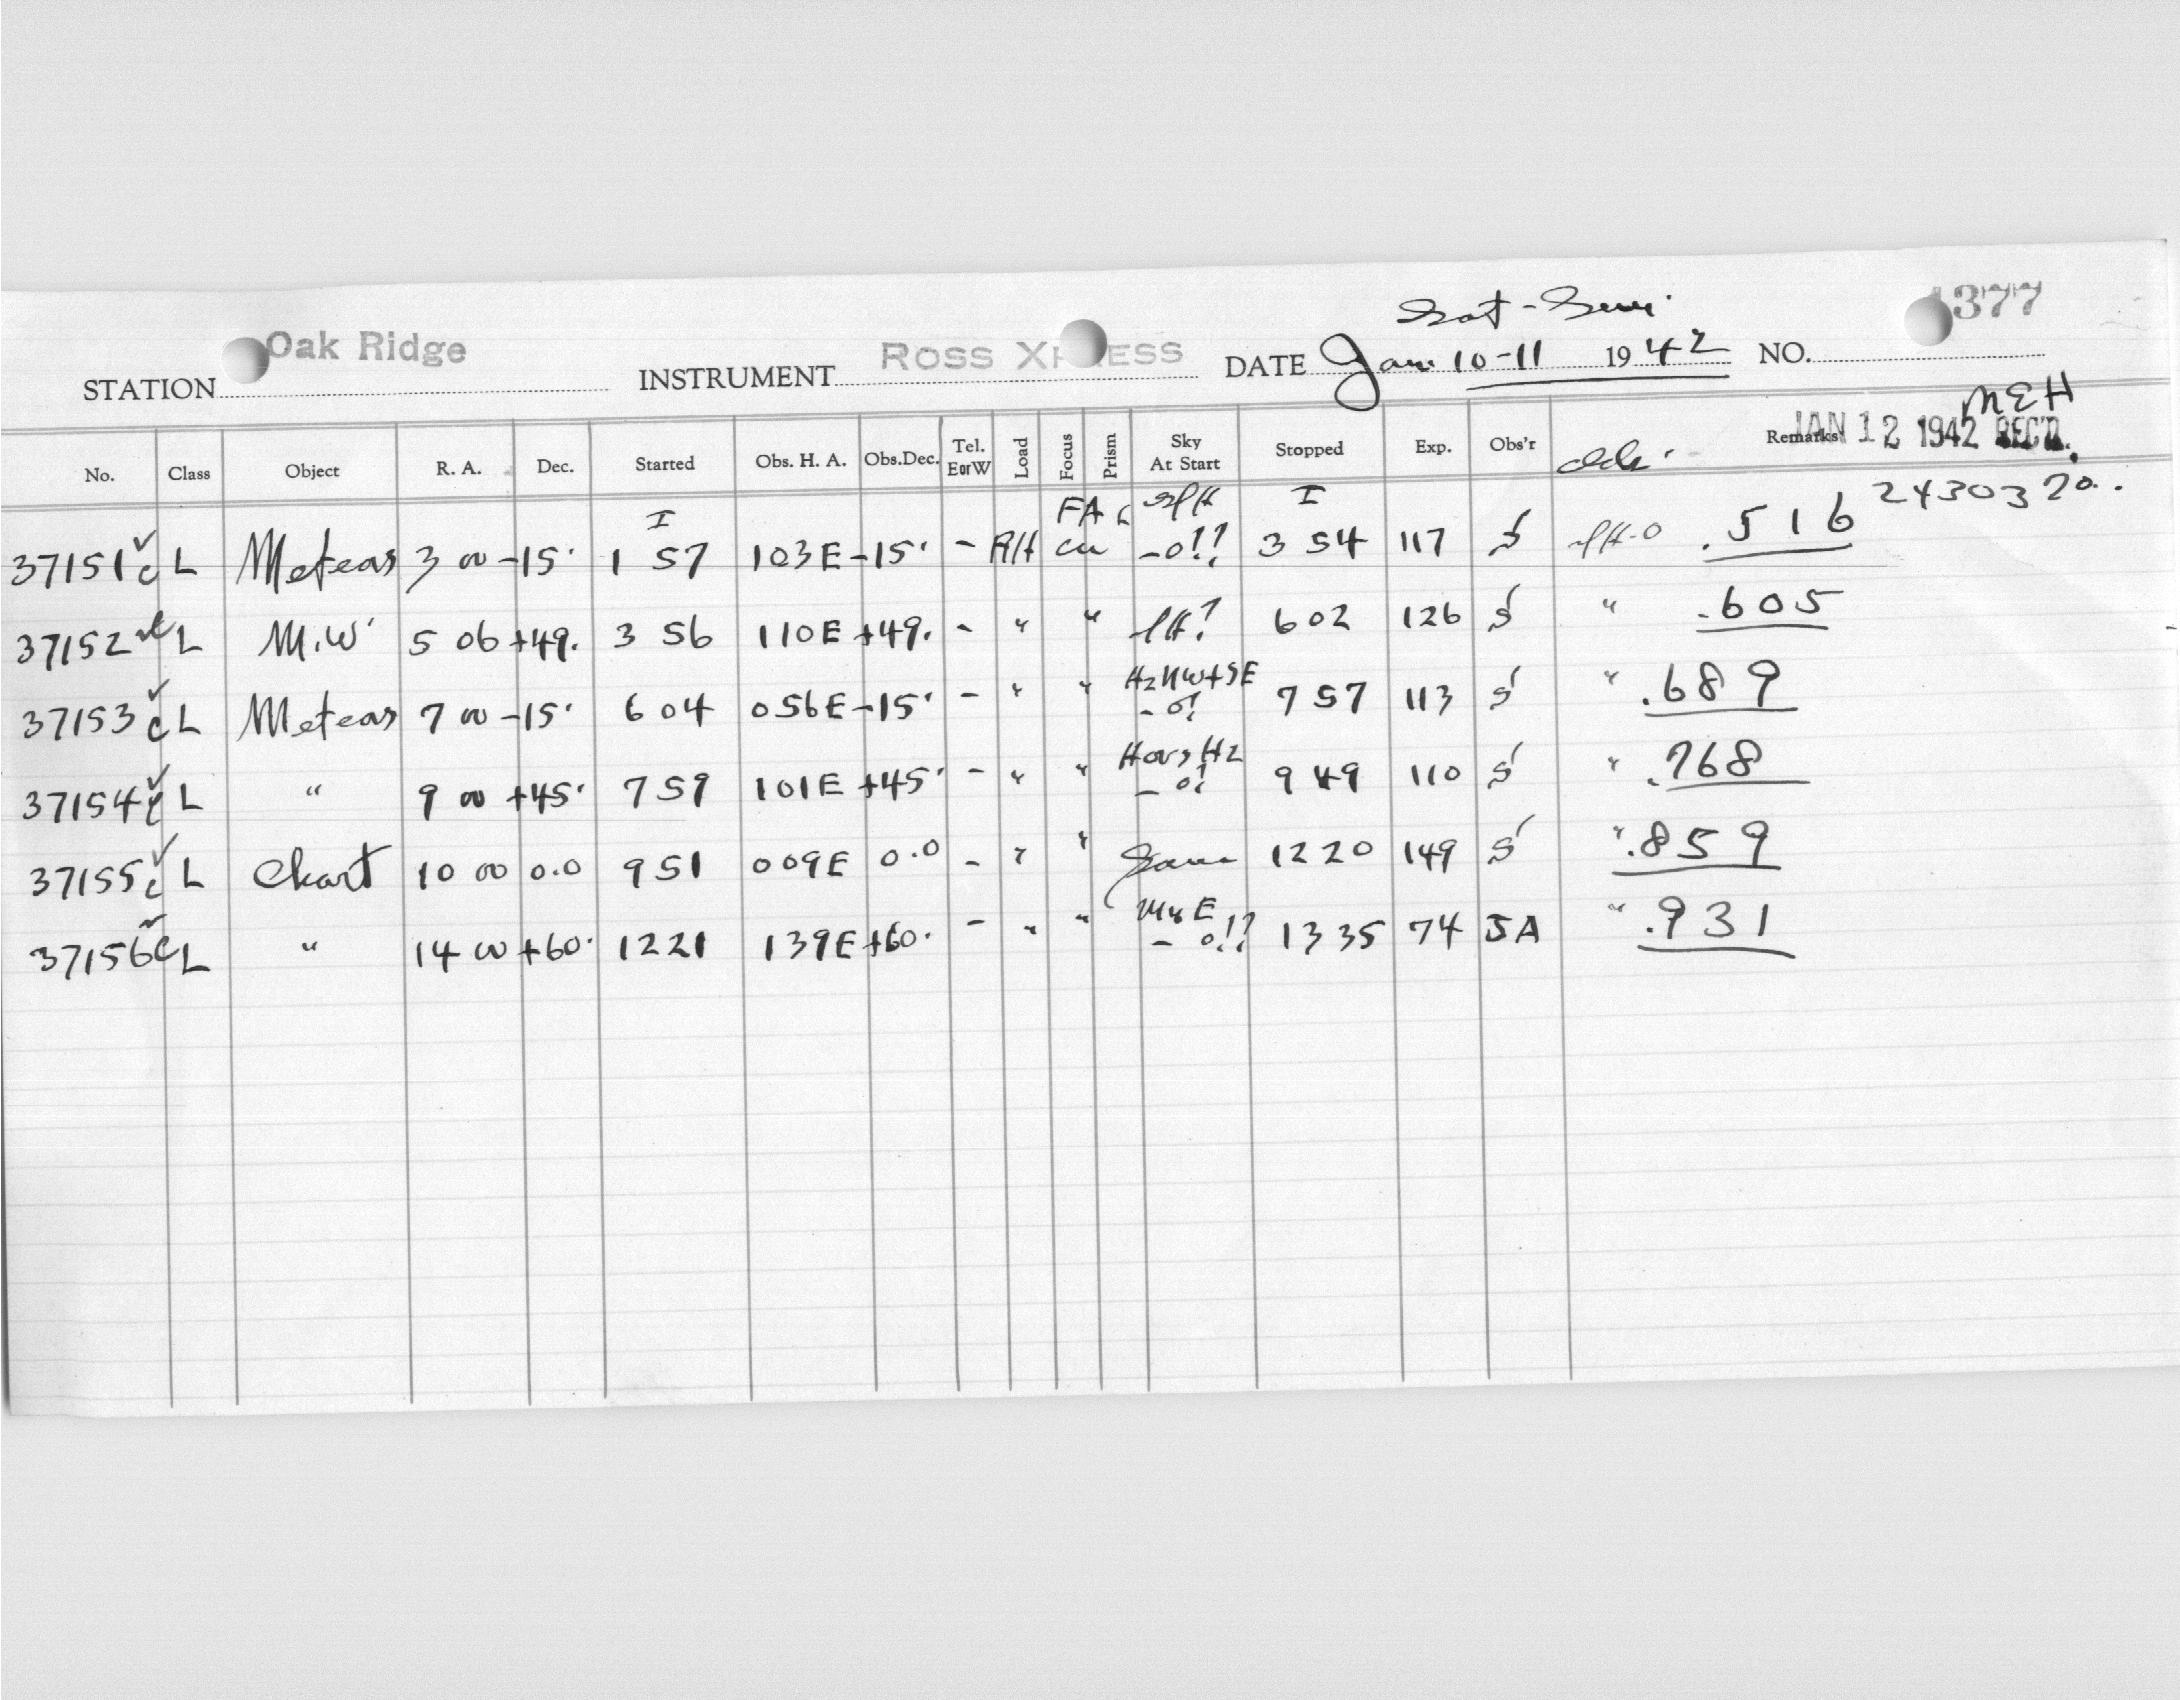 Sat-Sun.
1377
STATION Oak Ridge INSTRUMENT ROSS XPRESS DATE Jan 10-11 1942 NO.
MEH
JAN 12 1942 REC'D.
No. Class Object R. A. Dec. Started Obs. H. A. Obs.Dec. Tel. E or W Load Focus Prism Sky At Start Stopped Exp. Obs'r Remarks
2430370.
I FA I
37151 c L Meteors 3 00 -15· 1 57 103E -15· - RH -0!! 3 54 117 S .516
37152 c L M.W· 5 06 +49. 3 56 110E +49. - " " 602 126 S " .605
37153 c L Meteors 7 00 -15· 6 04 056E -15· - " " Hz NW+SE -0! 7 57 113 S " .689
37154 c L " 9 00 +45· 7 59 101E +45· - " " -0! 9 49 110 S " .768
37155 c L Chart 10 00 0.0 9 51 009E 0.0 - " " Same 1220 149 S " .859
37156 c L " 14 00 +60· 1221 139E +60· - " " -0!! 1335 74 JA " .931